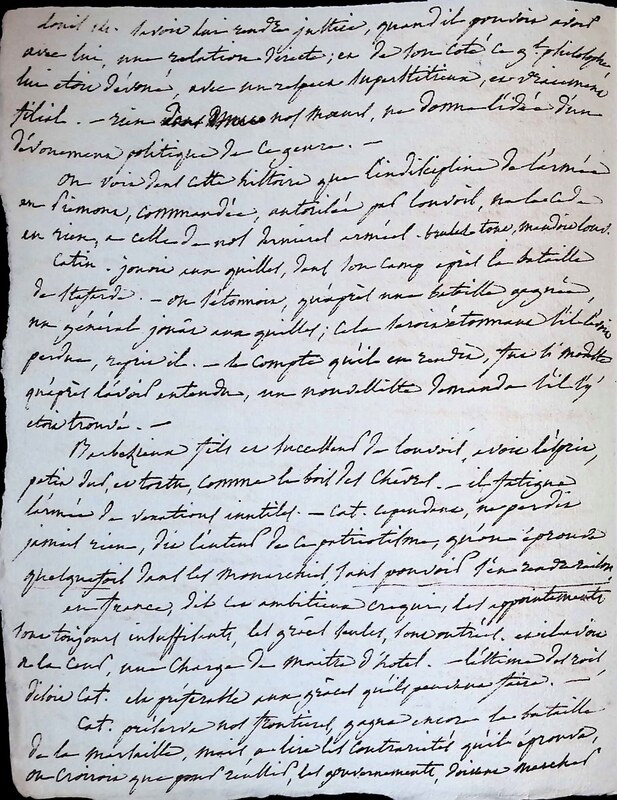 Louis 14. savoir lui rendre justice, quand il pouvoit avoir
avec lui, une relation directe; et de son coté ce gd. philosophe
lui etoit dévoué, avec un respect superstitieux, et vraiment
filial. — rien dans nos mœurs, ne donne l'idée d'un
dévouement politique de ce genre. —
On voit dans cette histoire que l'indiscipline de l'armée
en Piémont, commandée, autorisée par Louvois, ne le cede
en rien, a celle de nos dernieres armées. brulés tout, mandoit Louv.
Catin. jouoit aux quilles, dans son camp après la bataille
de Stafarde. — on s'étonnoit, qu'après une bataille gagnée,
un général jouât aux quilles; cela seroit étonnant s'il l'avoit
perdue, reprit il. — le compte qu'il en rendit, fut si modeste
qu'après l'avoir entendu, un nouvelliste demanda s'il s'y
etoit trouvé. —
Barbezieux fils et successeur de Louvois, avoit l'esprit,
petit dur, et tortu, comme le bois des chèvres. — il fatigue
l'armée de vexations inutiles. — Cat. cependant, ne perdit
jamais rien, dit l'auteur de ce patriotisme, qu'on éprouve
quelquefois dans les monarchies, sans pouvoir s'en rendre raison
en france, dit cet ambitieux crequi, les appointements
sont toujours insuffisants, les grâces seules, sont et il avoit
a la Cour, une charge de maitre d'hotel. — l'estime des rois
disoit Cat. est préférable aux grâces qu'ils peuvent faire. —
Cat. préserve nos frontieres, gagne encore la bataille
de la marsaille, mais, a lire les contrariétés qu'il éprouve,
on croiroit que pour les gouvernements, doivent marcher